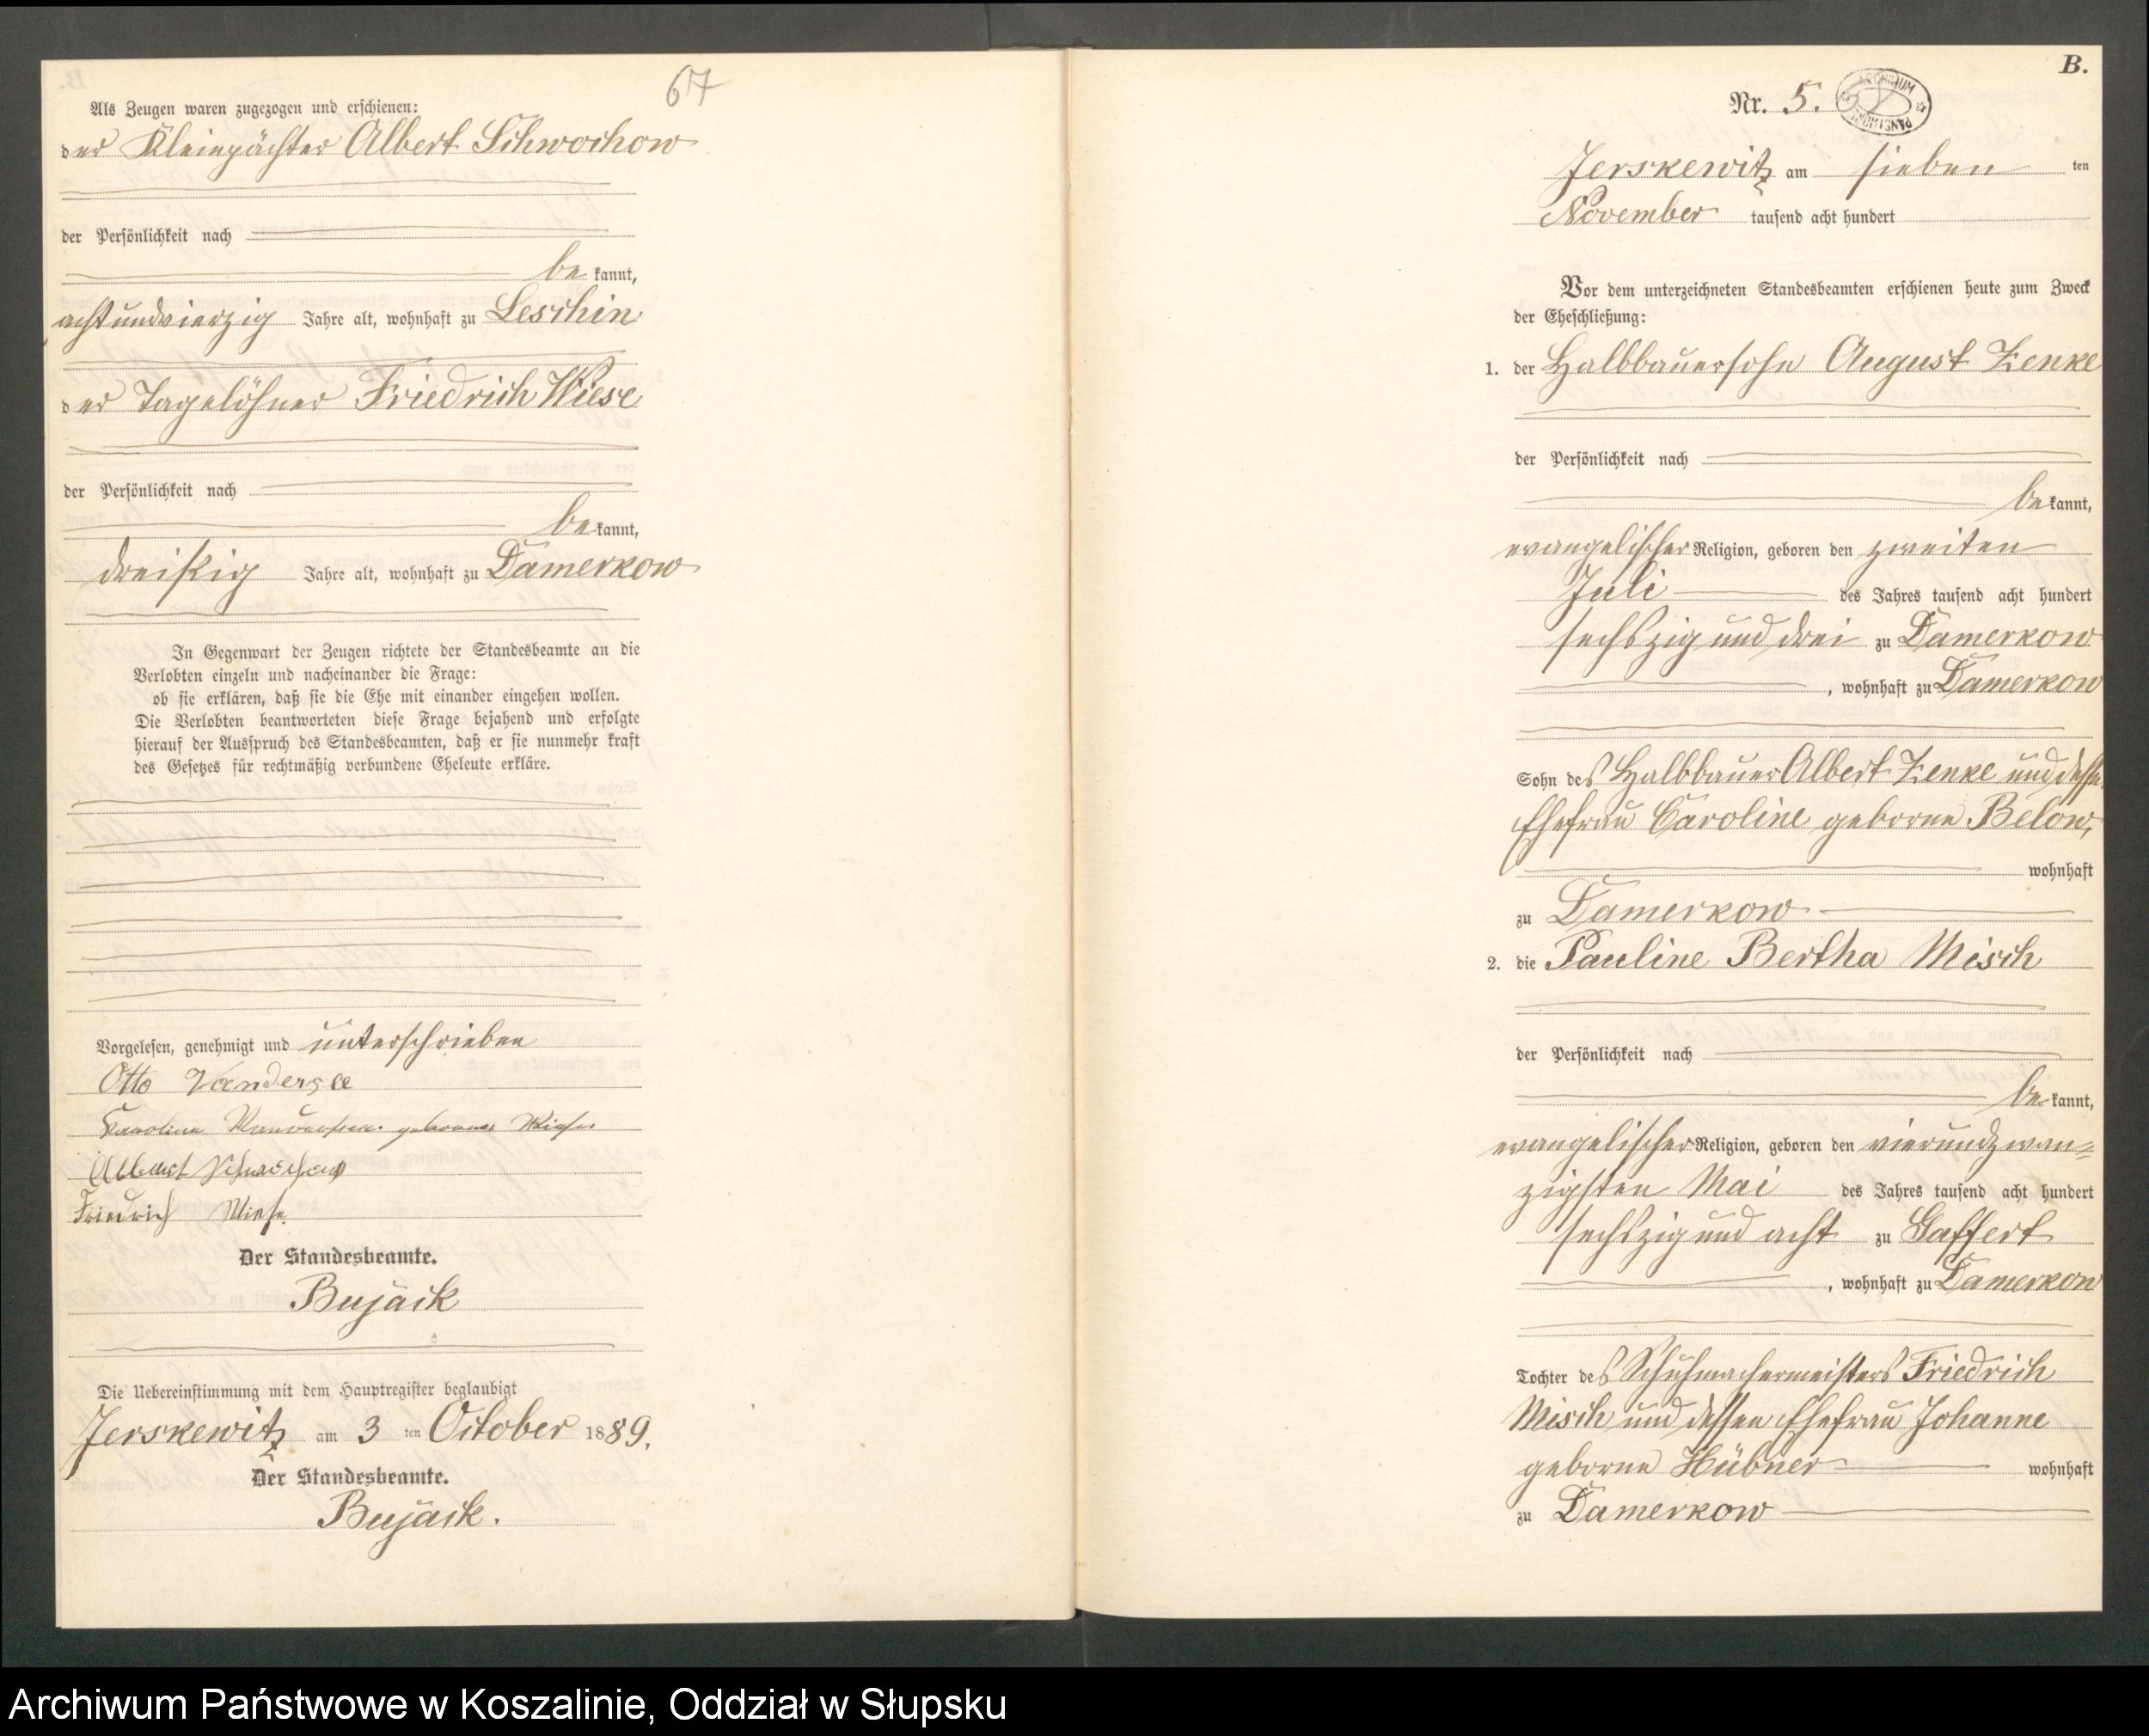 67
Als Zeugen waren zugezogen und erschienen:
der Kleinpächter Albert Schwochow
der Persönlichkeit nach
bekannt,
achtundvierzig Jahre alt, wohnhaft zu Leschin
der Tagelöhner Friedrich Wiese
der Persönlichkeit nach
bekannt,
dreißig Jahre alt, wohnhaft zu Damerkow
In Gegenwart der Zeugen richtete der Standesbeamte an die
Verlobten einzeln und nacheinander die Frage:
ob sie erklären, daß sie die Ehe mit einander eingehen wollen.
Die Verlobten beantworteten diese Frage bejahend und erfolgte
hierauf der Ausspruch des Standesbeamten, daß er sie nunmehr kraft
des Gesetzes für rechtmäßig verbundene Eheleute erkläre.
Vorgelesen, genehmigt und unterschrieben
Otto Vandersee
Karoline Vandersee geborene Wiese
Albert Schwochow
Friedrich Wiese
Der Standesbeamte.
Bujack
Die Uebereinstimmung mit dem Hauptregister beglaubigt
Jerskewitz am 3 ten October 1889.
Der Standesbeamte.
Bujack.
B.
Nr. 5.
Jerskewitz am sieben ten
November tausend acht hundert
Vor dem unterzeichneten Standesbeamten erschienen heute zum Zweck
der Eheschließung:
1. der Halbbauersohn August Zenke
der Persönlichkeit nach
bekannt,
evangelischer Religion, geboren den zweiten
Juli des Jahres tausend acht hundert
sechszig und drei zu Damerkow
, wohnhaft zu Damerkow
Sohn des Halbbauer Albert Zenke und dessen
Ehefrau Caroline geborne Below,
wohnhaft
zu Damerkow
2. die Pauline Bertha Misch
der Persönlichkeit nach
bekannt,
evangelischer Religion, geboren den vierundzwan=
zigsten Mai des Jahres tausend acht hundert
sechszig und acht zu Gaffert
, wohnhaft zu Damerkow
Tochter des Schuhmachermeisters Friedrich
Misch und dessen Ehefrau Johanne
geborne Hübner wohnhaft
zu Damerkow
Archiwum Państwowe w Koszalinie, Oddział w Słupsku